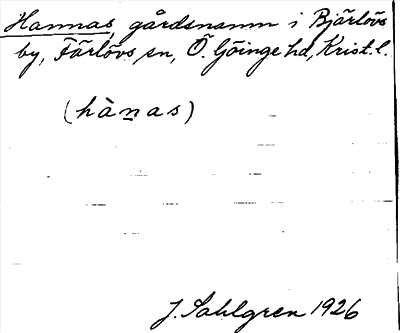 Hannas, gårdsnamn i Bjärlövs
by, Färlövs sn, Ö. Göinge hd, Krist. l.
(hànas)
J. Sahlgren 1926